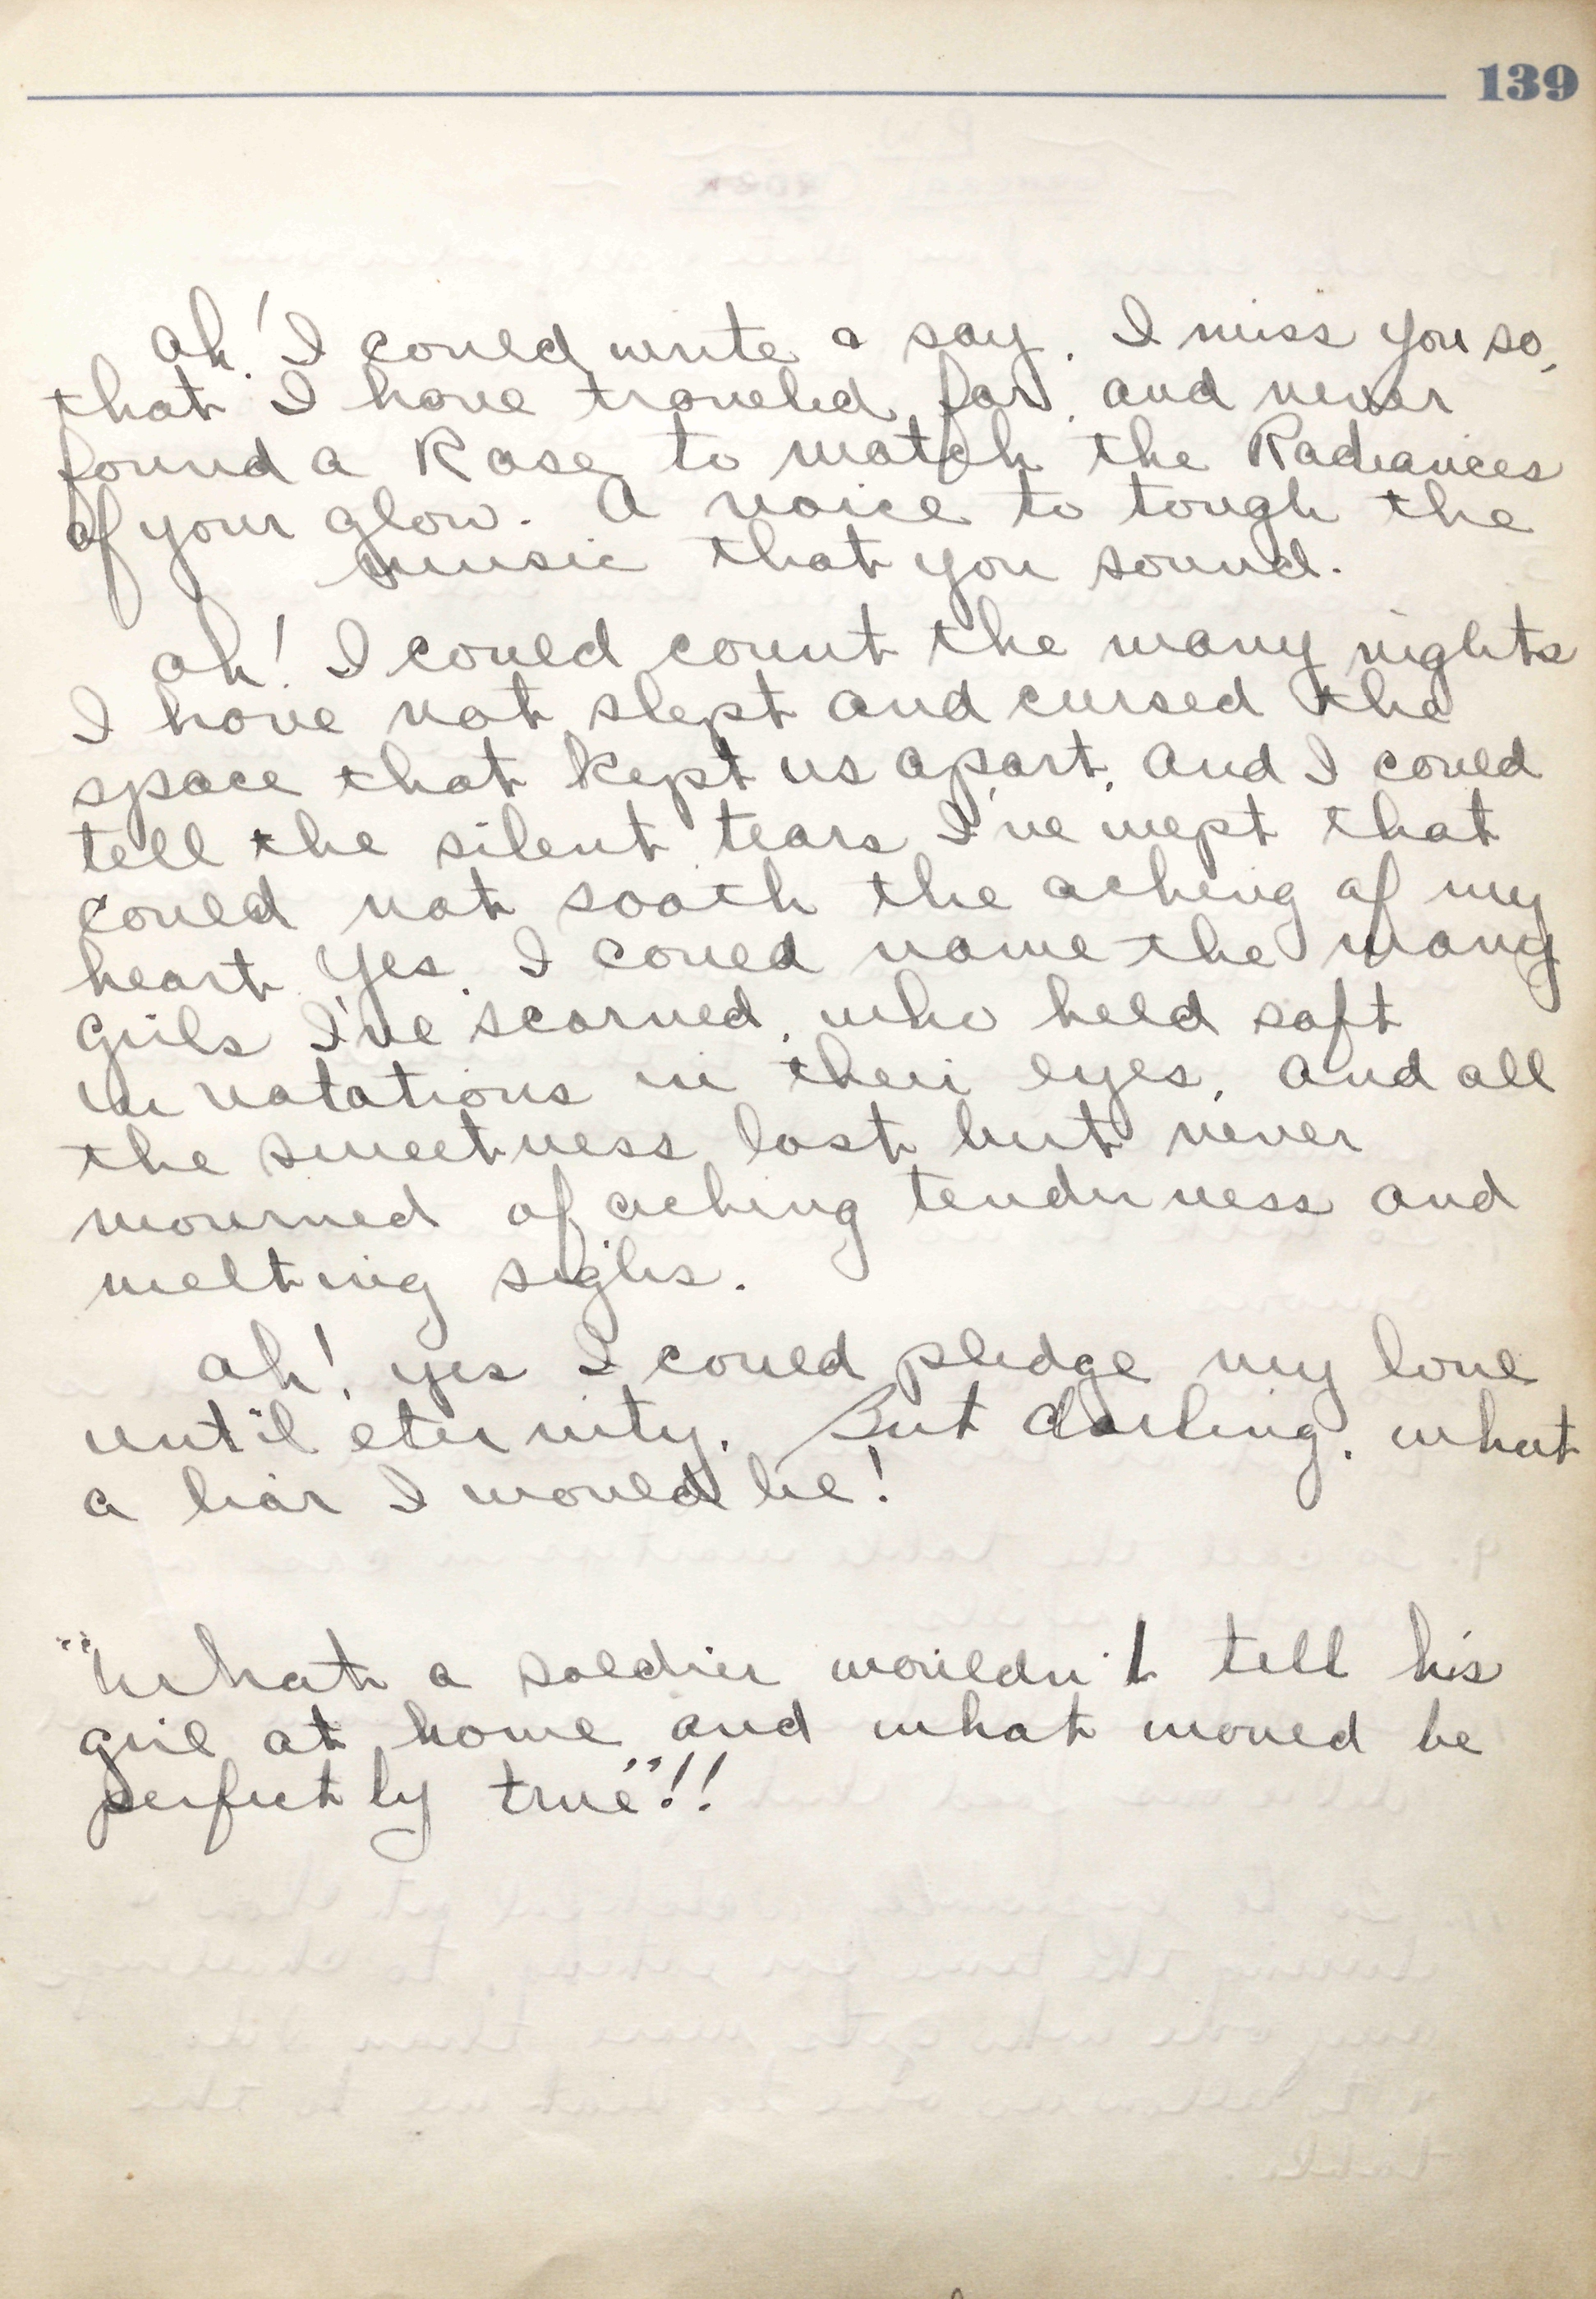 139
Ah! I could write a say. I miss you so,
that I have traveled far, and never
found a Rose to match the Radiances
of your glow. A voice to tough the
music that you sound.
Ah! I could count the many nights
I have not slept and cursed the
space that kept us apart. And I could
tell the silent tears I've wept that
could not sooth the aching of my
heart. Yes, I could name the many
girls I've scorned, who held soft
in their eyes, and all
the sweetness lost but never
mourned of aching tenderness and
melting sighs.
Ah! yes I could pledge my love
until eternity. But darling, what
a liar I would be!
"What a soldier wouldn't tell his
girl at home and what would be
perfectly true"!!